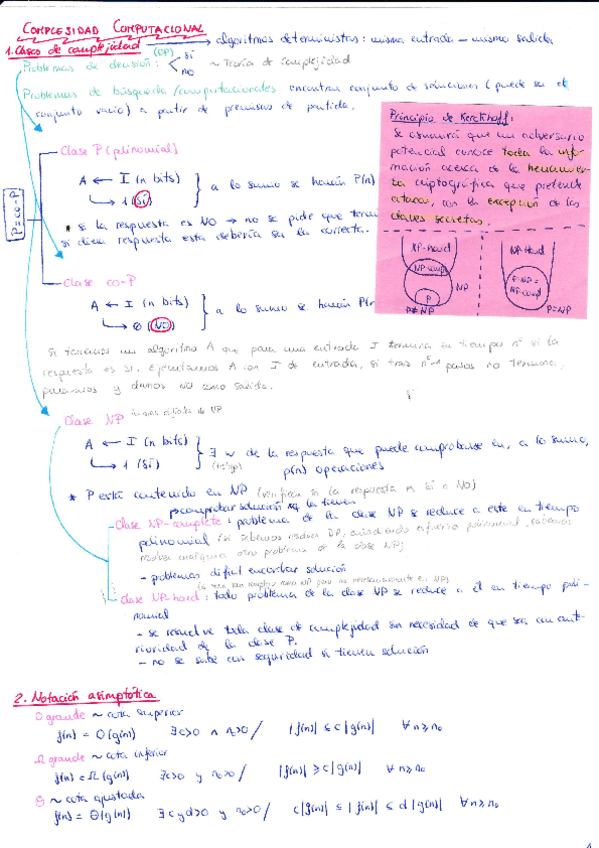 COMPLEJIDAD COMPUTACIONAL
1. Clases de complejidad → algoritmos deterministas: misma entrada - misma salida
Problemas de decisión: (DP) SI NO ~ Teoría de complejidad
Problemas de búsqueda/computacionales encontrar conjunto de soluciones (puede ser el
conjunto vacío) a partir de premisas de partida.
Principio de Kerckhoff:
Se asumirá que un adversario
potencial conoce toda la infor-
mación acerca de la herramien-
ta criptográfica que pretende
atacar, con la excepción de las
claves secretas.
NP-hard
NP-comp
P
NP
P≠NP
NP-Hard
P=NP=
NP-comp
P=NP
P=co-P
Clase P (polinomial)
A ← I (n bits)
→ 1 (SI)
a lo sumo se harán P(n)
* si la respuesta es NO → no se pide que term
si diera respuesta esta debería ser la correcta.
Clase co-P
A ← I (n bits)
→ 0 (NO)
a lo sumo se harán P(n
Si tenemos un algoritmo A que para una entrada I termina en tiempo n^c si la
respuesta es SI, ejecutamos A con I de entrada, si tras pasos no termina,
paramos y damos NO como salida.
Clase NP
A ← I (n bits)
→ 1 (SI)
∃ w de la respuesta que puede comprobarse en, a lo sumo,
(testigo) p(n) operaciones
* P está contenido en NP (verifican si la respuesta es SI o NO)
comprobar solución
Clase NP-complete: problema de la clase NP se reduce a este en tiempo
polinomial (si sabemos resolver DP, añadiendo esfuerzo polinomial, sabemos
resolver cualquier otro problema de la clase NP)
- problemas difícil encontrar solución
Clase NP-hard: todo problema de la clase NP se reduce a él en tiempo poli-
nomial
- se resuelve toda clase de complejidad sin necesidad de que sea
de la clase P.
- no se sabe con seguridad si tienen solución
2. Notación asimptótica
O grande ~ cota superior
f(n) = O(g(n)) ∃ c>0 ∧ n₀>0 / |f(n)| ≤ c|g(n)| ∀ n≥n₀
Ω grande ~ cota inferior
f(n) = Ω(g(n)) ∃ c>0 y n₀>0 / |f(n)| ≥ c|g(n)| ∀ n≥n₀
Θ ~ cota ajustada
f(n) = Θ(g(n)) ∃ c y d>0 y n₀>0 / c|g(n)| ≤ |f(n)| ≤ d|g(n)| ∀ n≥n₀